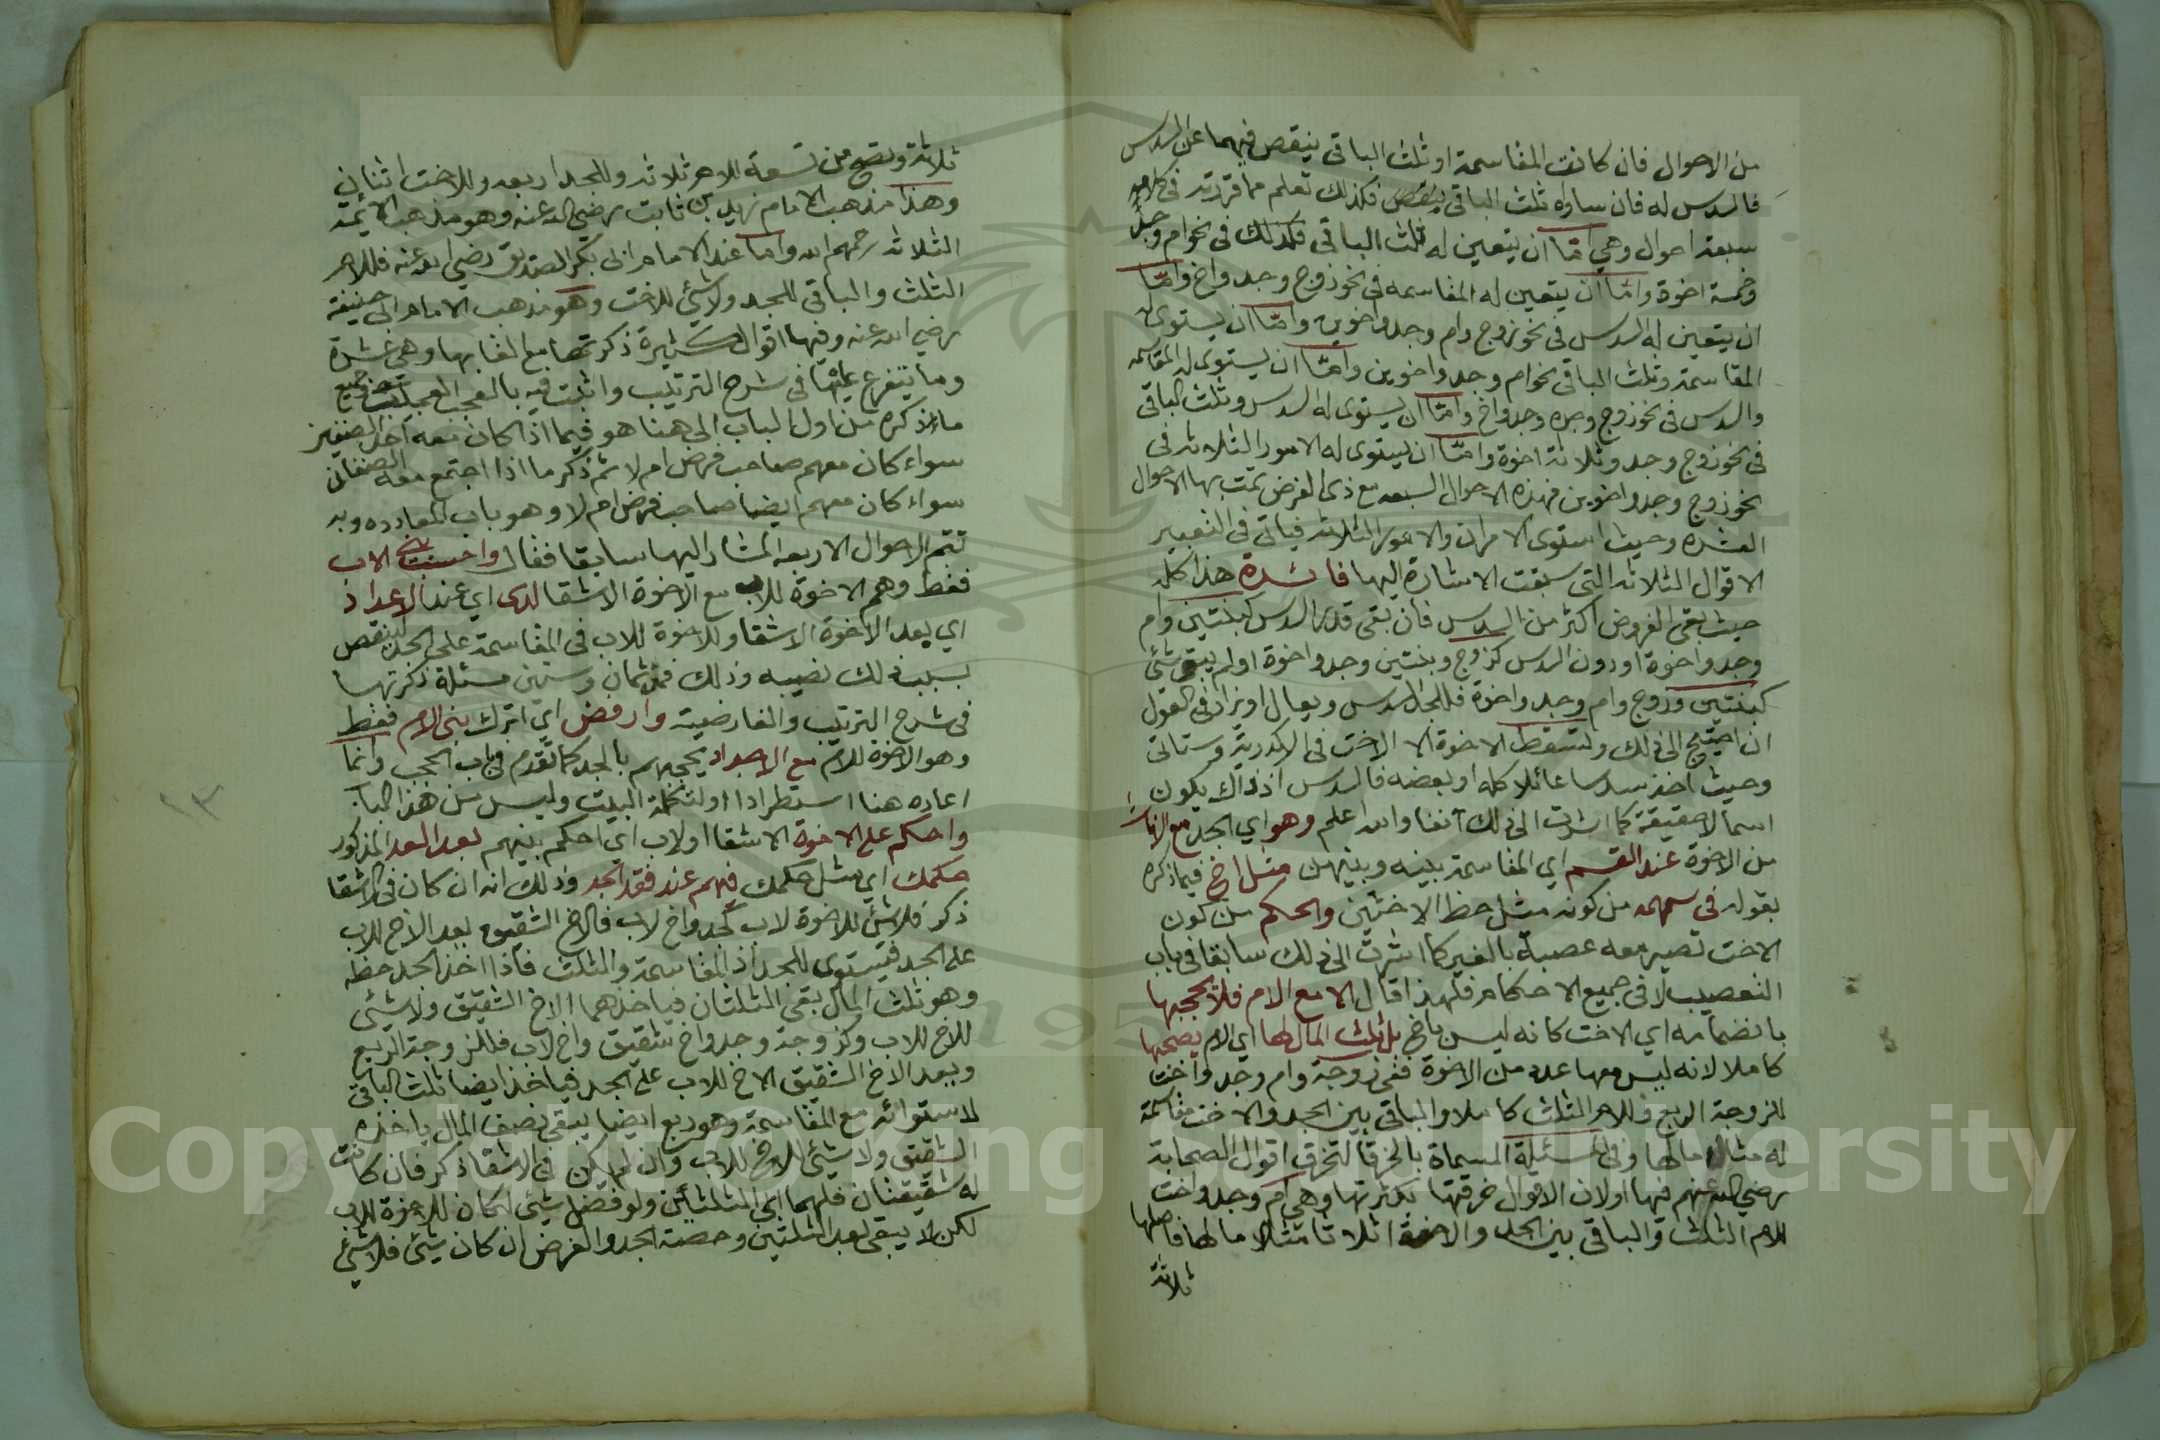 من الاحوال فان كانت المقاسمة او ثلث الباقي ينقص فيهما عن السدس
فالسدس له فان ساواه ثلث الباقي فكذلك تعلم مما قررته في كلامه
سبعة احوال وهي امّا ان يتعين له ثلث الباقي فكذلك في نحو ام وجد
وخمسة اخوة وامّا ان يتعين له المقاسمه في نحو زوج وجد واخ وامّا
ان يتعين له السدس في نحو زوج وام وجد واخوين وامّا ان يستوي
المقاسمة وثلث الباقي نحو ام وجد واخوين وامّا ان يستوي له المقاسمه
والسدس في نحو زوج وجده وجد واخ وامّا ان يستوي له السدس وثلث الباقي
في نحو زوج وجد وثلاثة اخوة وامّا ان يستوي له الامور الثلاثه في
نحو زوج وجد واخوين فهذه الاحوال السبعه مع ذي الفرض تمت بها الاحوال
العشره وحيث استوى الامران والامور الثلاثه فياتي في التعبير
الاقوال الثلاثه التي سبقت الاشارة اليها فائدة هذا كله
حيث بقي الفروض اكثر من السدس فان بقي قدر السدس كبنتين وام
وجد واخوة او دون السدس كزوج وبنتين وجد واخوة او لم يبق شئ
كبنتين وزوج وام وجد واخوة فللجد السدس ويعال او يزاد في العول
ان احتيج الى ذلك وتسقط الاخوة الا الاخت في الاكدرية وستاتي
وحيث اخذ سدسا عائلا كله او بعضه فالسدس اذ ذاك يكون
اسما لا حقيقة كما اشرت الى ذلك آنفا والله اعلم وهو اي الجد مع الاناث
من الاخوة عند القسم اي المقاسمة بينه وبينهن مثل اخ فيما ذكره
بقوله في سهمه من كونه مثل حظ الاختين والحكم من كون
الاخت تصير معه عصبة بالغير كما اشرت الى ذلك سابقا في باب
التعصيب لا في جميع الاحكام فلهذا قال الا مع الام فلا يحجبها
بانضمامه اي الاخت كانه ليس باخ بل ثلث المال لها اي الام يصحبها
كاملا لانه ليس معها عدد من الاخوة ففي زوجة وام وجد واخت
للزوجة الربع وللام الثلث كاملا والباقي بين الجد والاخت مقاسمة
له مثلا ما لها وفي المسئلة المسماة بالخرقا لتخرق اقوال الصحابة
رضي الله عنهم فيها او لان الاقوال خرقتها بكثرتها وهي ام وجد واخت
للام الثلث والباقي بين الجد والاخت اثلاثا مثلا ما لها فاصلها
ثلاثة
ثلاثة وتصح من تسعة للام ثلاثه وللجد اربعه وللاخت اثنان
وهذا مذهب الامام زيد بن ثابت رضي الله عنه وهو مذهب الائمة
الثلاثه رحمهم الله واما عند الامام ابي بكر الصديق رضي الله عنه فللام
الثلث والباقي للجد ولا شئ للاخت وهو مذهب الامام ابي حنيفة
رضي الله عنه وفيها اقوال كثيرة ذكرتها مع القابها وهي عشرة
وما يتفرع عليها في شرح الترتيب واتيت فيه بالعجب العجاب جميع
ما ذكره من اول الباب الى هنا هو فيما اذا كان معه احد الصنفين
سواء كان معهم صاحب فرض ام لا ثم ذكر ما اذا اجتمع معه الصنفان
سواء كان معهم ايضا صاحب فرض ام لا وهو باب المعادده وبه
تتم الاحوال الاربعه المشار اليها سابقا فقال واحسب بني الاب
فقط وهم الاخوة للاب مع الاخوة الاشقا لدى اي عند الاعداد
اي يعد الاخوة الاشقا والاخوة للاب في المقاسمة على الجد لينقص
بسبب ذلك نصيبه وذلك في ثمان وستين مسئلة ذكرتها
في شرح الترتيب والفارضية وارفض اي اترك بني الام فقط
وهو الاخوة للام مع الاجداد يحجبهم بالجد كما تقدم في باب الحجب وانما
اعاده هنا استطرادا او لتكملة البيت وليس من هذا الباب
واحكم على الاخوة الاشقا او لاب اي احكم بينهم بعد العد المذكور
حكمك اي مثل حكمك فيهم عند فقد الجد وذلك انه ان كان في الاشقا
ذكر فلا شئ للاخوة لاب كجد واخ لاب فالاخ الشقيق يعد الاخ للاب
على الجد فيستوي للجد اذ المقاسمة والثلث فاذا اخذ الجد حظه
وهو ثلث المال بقي الثلثان فياخذهما الاخ الشقيق ولا شئ
للاخ للاب وكزوجة وجد واخ شقيق واخ لاب فللزوجة الربع
ويعد الاخ الشقيق الاخ للاب على الجد فياخذ ايضا ثلث الباقي
لاستوائه مع المقاسمة وهو ربع ايضا يبقى نصف المال ياخذه
الشقيق ولا شئ للاخ للاب وان لم يكن في الاشقا ذكر فان كانت
له شقيقتان فلهما الى الثلثين ولو فضل شئ لكان للاخوة للاب
لكن لا يبقى بعد الثلثين وحصة الجد والفرض ان كان شئ فلا شئ
١٣
Copyright © King Saud University
1957